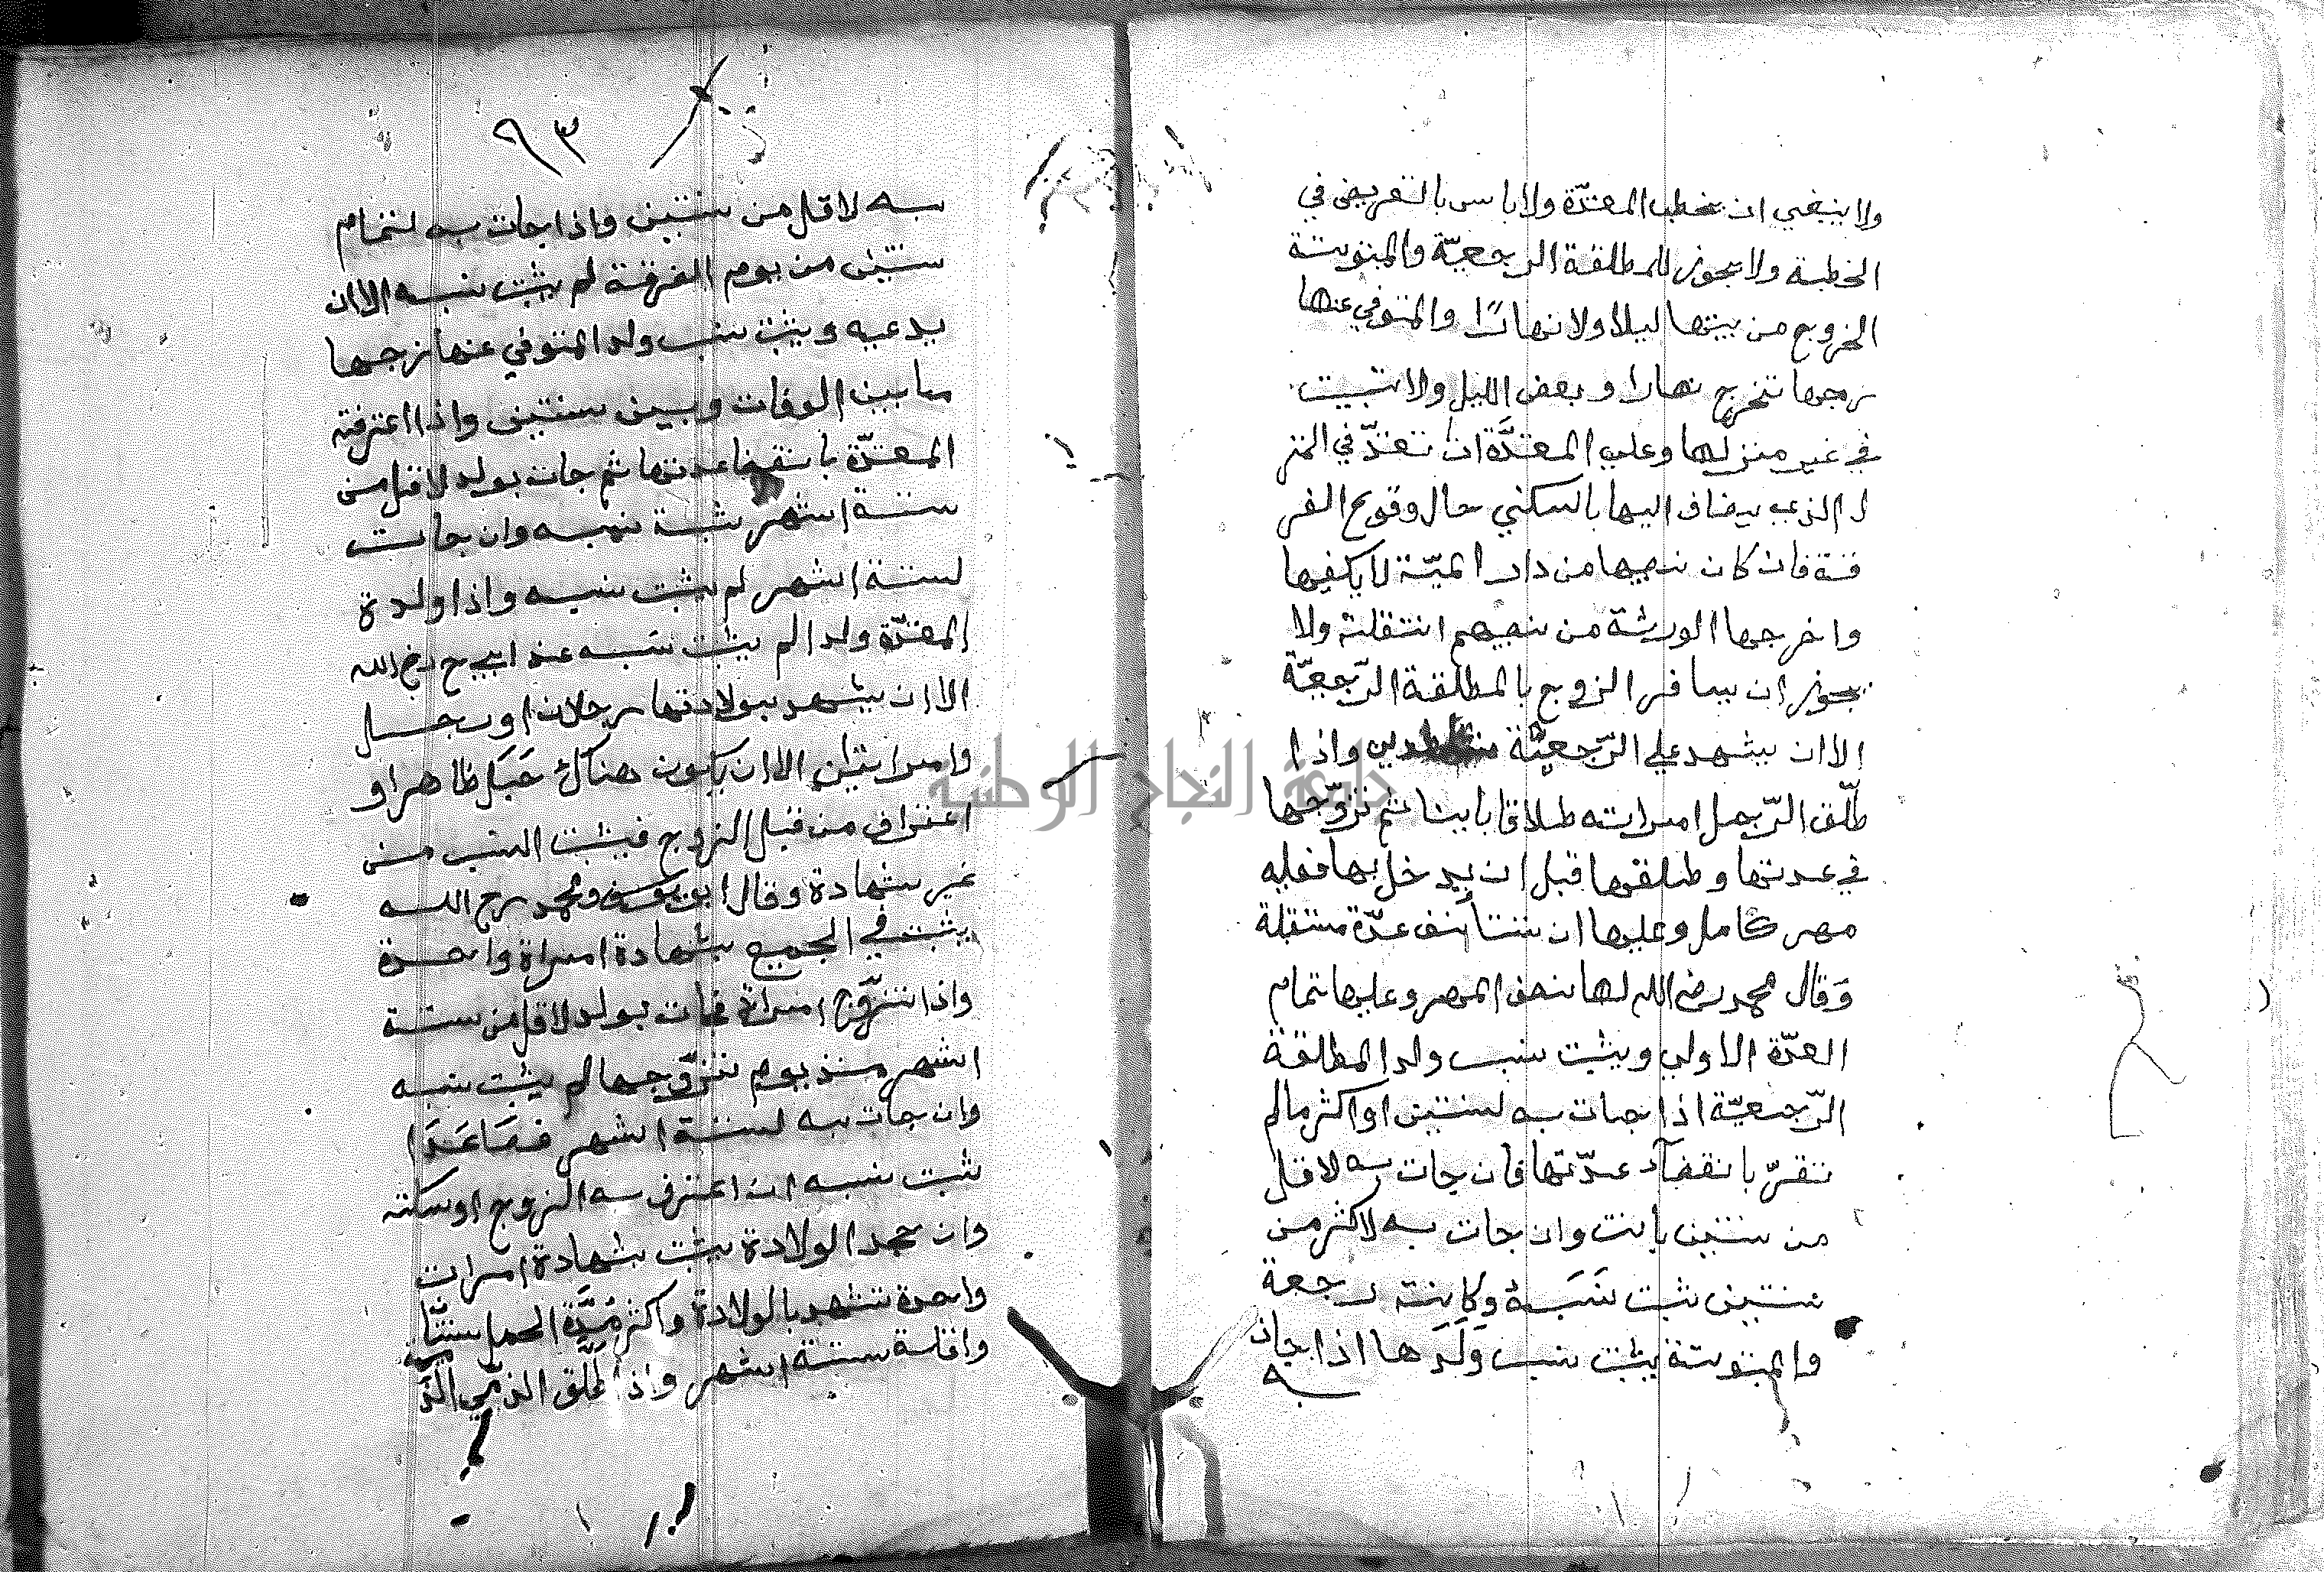 ولا ينبغي ان تخطب المعتدّة ولا باس بالتعريض في
الخطبة ولا يجوز للمطلقة الرجعيّة والمبتوتة
الخروج من بيتها ليلا ولا نهارًا والمتوفي عنها
زوجها تخرج نهارا وبعض الليل ولا تبيت
في غير منزلها وعلي المعتدَّة ان تعتدّ في المنز
ل الذي يضاف اليها بالسكني حال وقوع الفر
قة فان كان نصيبها من دار الميّت لا يكفيها
واخرجها الورثة من نصيبهم انتقلت ولا
يجوز ان يسافر الزوج بالمطلقة الرّجعيّة
الا ان يشهد علي الرّجعيّة شاهدين واذا
طلّق الرّجل امراته طلاقا باينا ثم تزوّجها
في عدتها وطلقها قبل ان يدخل بها فعليه
مهر كامل وعليها ان تستأنف عدّة مستقلة
وَقال محمد رضي الله لها نصف المهر وعليها تمام
العدّة الاولي ويثبت نسب ولد المطلقة
الرّجعيّة اذا جات به لسنتين او اكثر مالم
تقرّ بانقضآء عدّتها فان جات به لاقل
من سنتين بانت وان جات به لاكثر من
سنتين ثبت نَسَبهُ وكانت رجعة
والمبتوتة يثبت نسب وَلَدها اذا جات
به
جامعة النجاح الوطنية
٩٣
به لاقل من سنتين واذا جات به لتمام
سنتين من يوم الفرقة لم يثبت نسبه الا ان
يدعيه ويثبت نسب ولد المتوفي عنها زوجها
ما بين الوفات وبين سنتين واذا اعترفت
المعتدّة بانقضا عدتها ثم جات بولد لاقل من
ستة اشهر ثبت نسبه وان جات
لستة اشهر لم يثبت نسبه واذا ولدة
المعتدّة ولدا لم يثبت نسَبه عند ابي ح رضي الله
الا ان يشهد بولادتها رجلان او رجل
وامراتان الا ان يكون هناك حَبَل ظاهر او
اعتراف من قبل الزوج فيثبت النسب من
غير شهادة وقال ابو يوسف ومحمد رح الله
يثبت في الجميع بشهادة امراة واحدة
واذا تزوّج امراة فجات بولد لاقل من ستة
اشهر منذ يوم تزوّجها لم يثبت نسبه
وان جات به لستة اشهر فصَاعَدَا
ثبت نسبه ان اعترف به الزوج او سكت
وان جحد الولادة يثبت بشهادة امرات
واحدة تشهد بالولادة واكثر مُدَّة الحمل سنتا
ن
واقله ستة اشهر واذا طلَّق الذمّي الذ